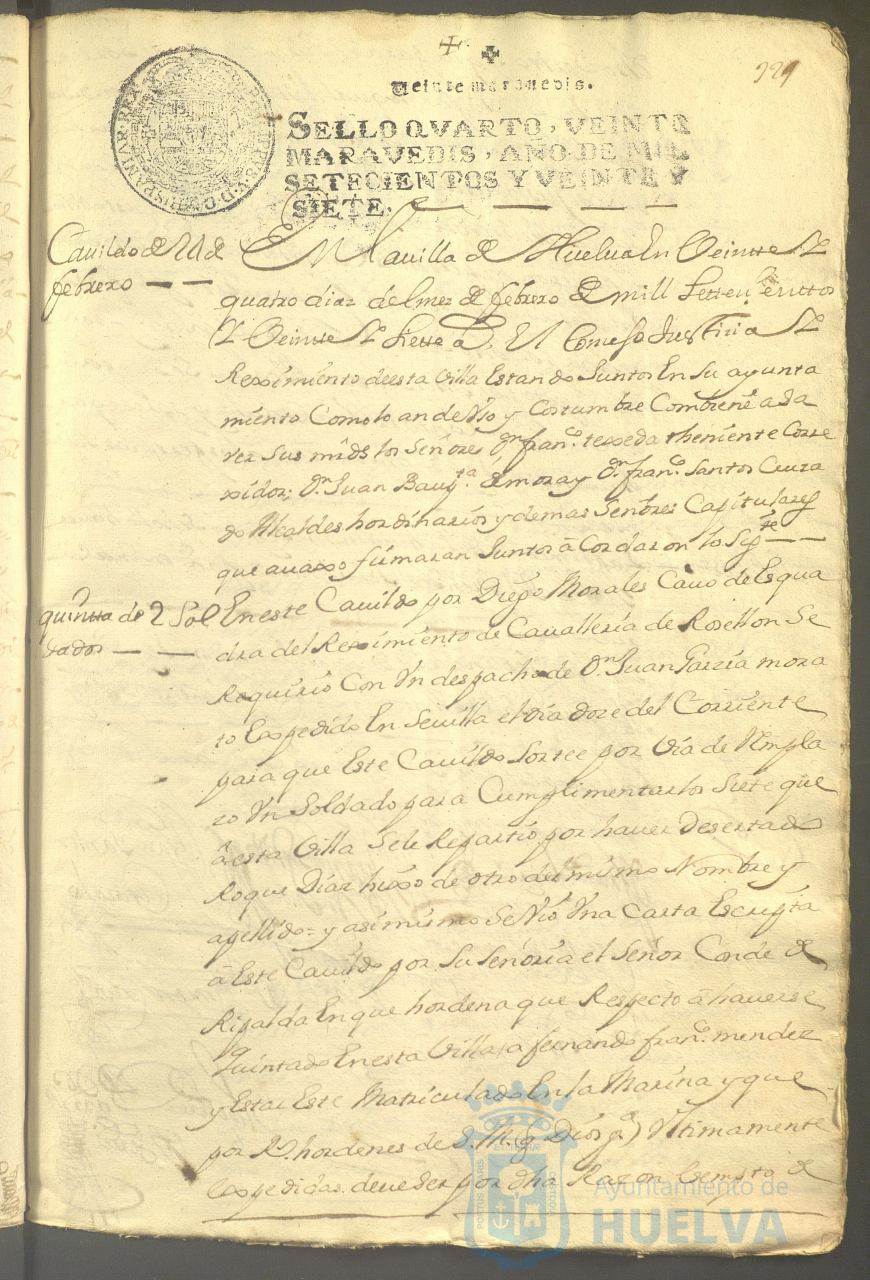 229
Veinte maravedis.
SELLO QVARTO, VEINTE
MARAVEDIS, AÑO DE MIL
SETECIENTOS Y VEINTE Y
SIETE.
Cauildo de 24 de
febrero
En la uilla de Huelua En Veintte Y
quatro dias del mes de febrero de mill Setteçientos
Y Veintte Y Siette a.s El Consejo Justicia Y
Reximiento de esta Villa Estando Juntos En Su ayunta
miento Como lo an de Vso y Costumbre Combiene a Sa
ver Sus mrds los Señores Dn fran.co texeda theniente Corre
xidor; Dn Juan Baup.ta de mora y Dn fran.co Santos
do Alcaldes hordinarios y demas Señores Capitulares
que auaxo firmaran Juntos acordaron lo Sig.te
quintta de 2 Sol
dados
En este Cauildo por Diego Morales Cauo de Esqua
dra del Reximiento de Caualleria de Rosellon Se
Requirio Con Vn despacho de Dn Juan Garzia mora
to Expedido En Seuilla el dia doze del Corriente
para que Este Cauildo Sortee por Via de Rempla
zo Vn Soldado para Cumplimentar los Siete que
a esta Villa Se le Repartio por hauer Desertado
Roque Diaz hixo de otro del mismo Nombre y
apellido= y asimismo Se Vio Vna Carta Escripta
a Este Cauildo por Su Señoria el Señor Conde de
Ripalda En que hordena que Respecto a hauerse
Quintado En esta Villa a fernando fran.co mendez
y Estar Este Matriculado En la Marina y que
por Rs hordenes de S. M. (q Dios g.e) Vltimamente
Expedidas deue Ser por dha Razon Exempto de
PORTUS MARIS
CUSTODIA
Ayuntamiento de
HUELVA